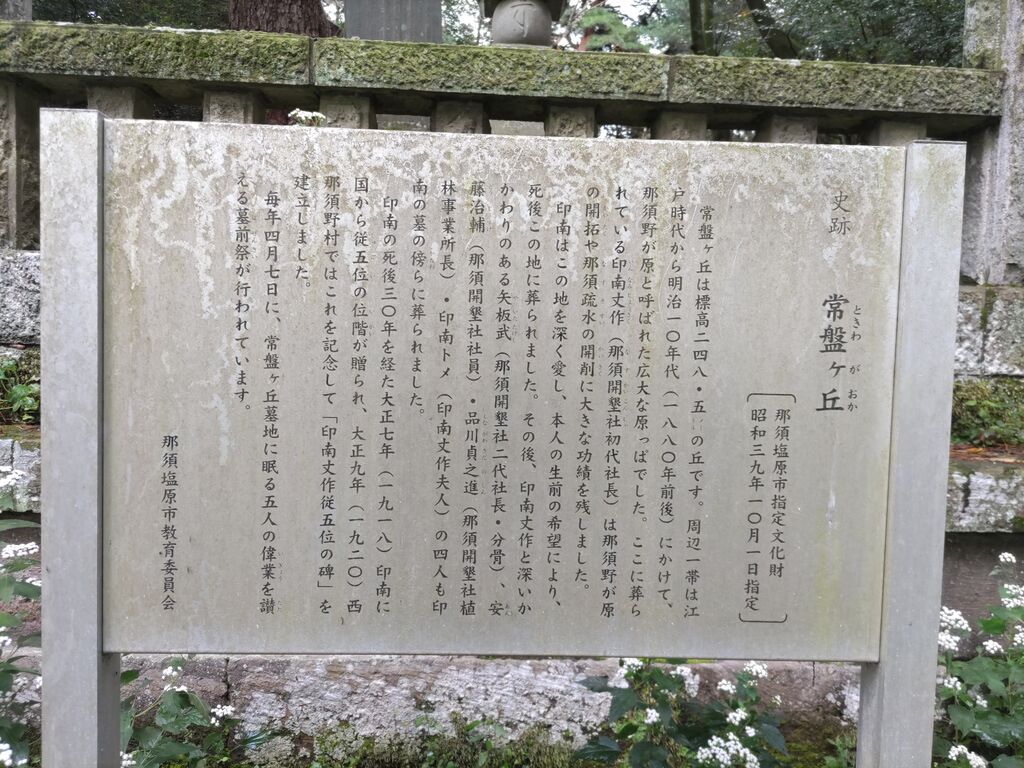 史跡 常盤ヶ丘
ときわ が おか
那須塩原市指定文化財
昭和三九年一〇月一日指定
常盤ヶ丘は標高二四八・五 の丘です。周辺一帯は江
戸時代から明治一〇年代（一八八〇年前後）にかけて、
那須野が原と呼ばれた広大な原っぱでした。ここに葬ら
れている印南丈作（那須開墾社初代社長）は那須野が原
の開拓や那須疏水の開削に大きな功績を残しました。
印南はこの地を深く愛し、本人の生前の希望により、
死後この地に葬られました。その後、印南丈作と深いか
かわりのある矢板武（那須開墾社二代社長・分骨）、安
藤治輔（那須開墾社社員）・品川貞之進（那須開墾社植
林事業所長）・印南トメ（印南丈作夫人）の四人も印
南の墓の傍らに葬られました。
印南の死後三〇年を経た大正七年（一九一八）印南に
国から従五位の位階が贈られ、大正九年（一九二〇）西
那須野村ではこれを記念して「印南丈作従五位の碑」を
建立しました。
毎年四月七日に、常盤ヶ丘墓地に眠る五人の偉業を讃
える墓前祭が行われています。
那須塩原市教育委員会